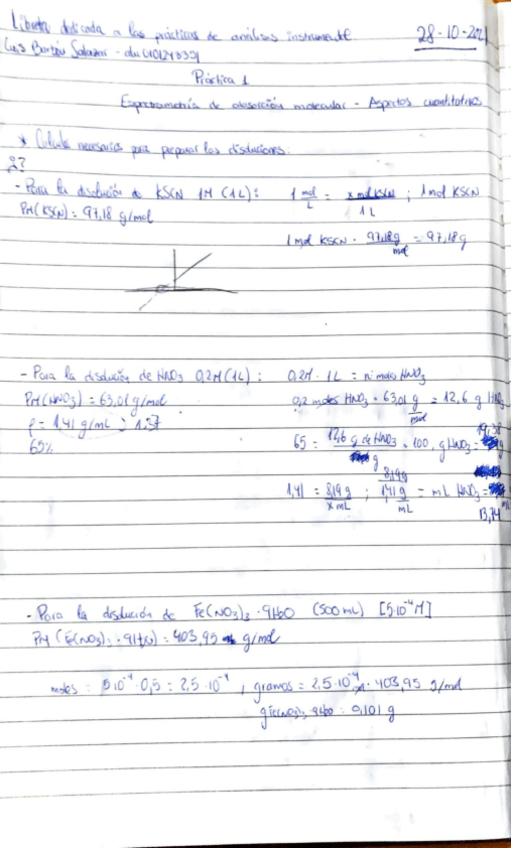 Libreta dedicada a las prácticas de análisis instrumental. 28-10-2021
Luis Bartolu Salazar - alu
Práctica 1
Espectrometría de absorción molecular - Aspectos cuantitativos
* Calculos necesarios para preparar las disoluciones.
2?
- Para la disolución de KSCN 1M (1L): 1 mol/L = x mol KSCN / 1 L ; 1 mol KSCN
PM(KSCN) = 97,18 g/mol
1 mol KSCN · 97,18 g / mol = 97,18 g
- Para la disolución de HNO3 0,2M (1L): 0,2M · 1L = nº moles HNO3
PM(HNO3) = 63,01 g/mol 0,2 moles HNO3 · 63,01 g / mol = 12,6 g HNO3
ρ = 1,41 g/mL 1.37
65% 65 = 12,6 g de HNO3 / g · 100, g HNO3 = 19,38 g
1,41 = 8,19 g / x mL ; 8,19 g / 1,41 g/mL = mL HNO3 = 13,74 mL
- Para la disolución de Fe(NO3)3 · 9H2O (500 mL) [5·10⁻⁴ M]
PM (Fe(NO3)3 · 9H2O) = 403,95 g/mol
moles = 5·10⁻⁴ · 0,5 = 2,5·10⁻⁴ , gramos = 2,5·10⁻⁴ · 403,95 g/mol
g Fe(NO3)3 9H2O = 0,101 g